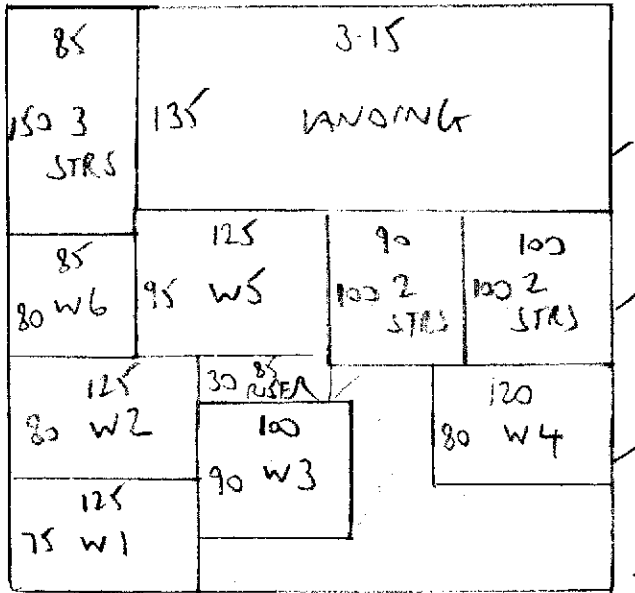 85
150 3
STRS
3-15
135 LANDING
85
80 W6
125
95 W5
90
100 2
STRS
100
100 2
STRS
125
80 W2
85
30 RISER
100
90 W3
120
80 W4
125
75 W1